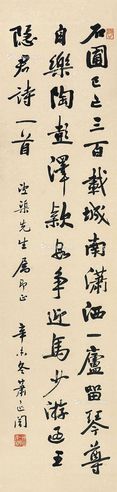 石圃已上三百載城南瀟洒一廬留琴尊
自樂陶彭澤款段爭近馬少游通王
隱君詩一首
逆渠先生属即正
辛未冬蕭